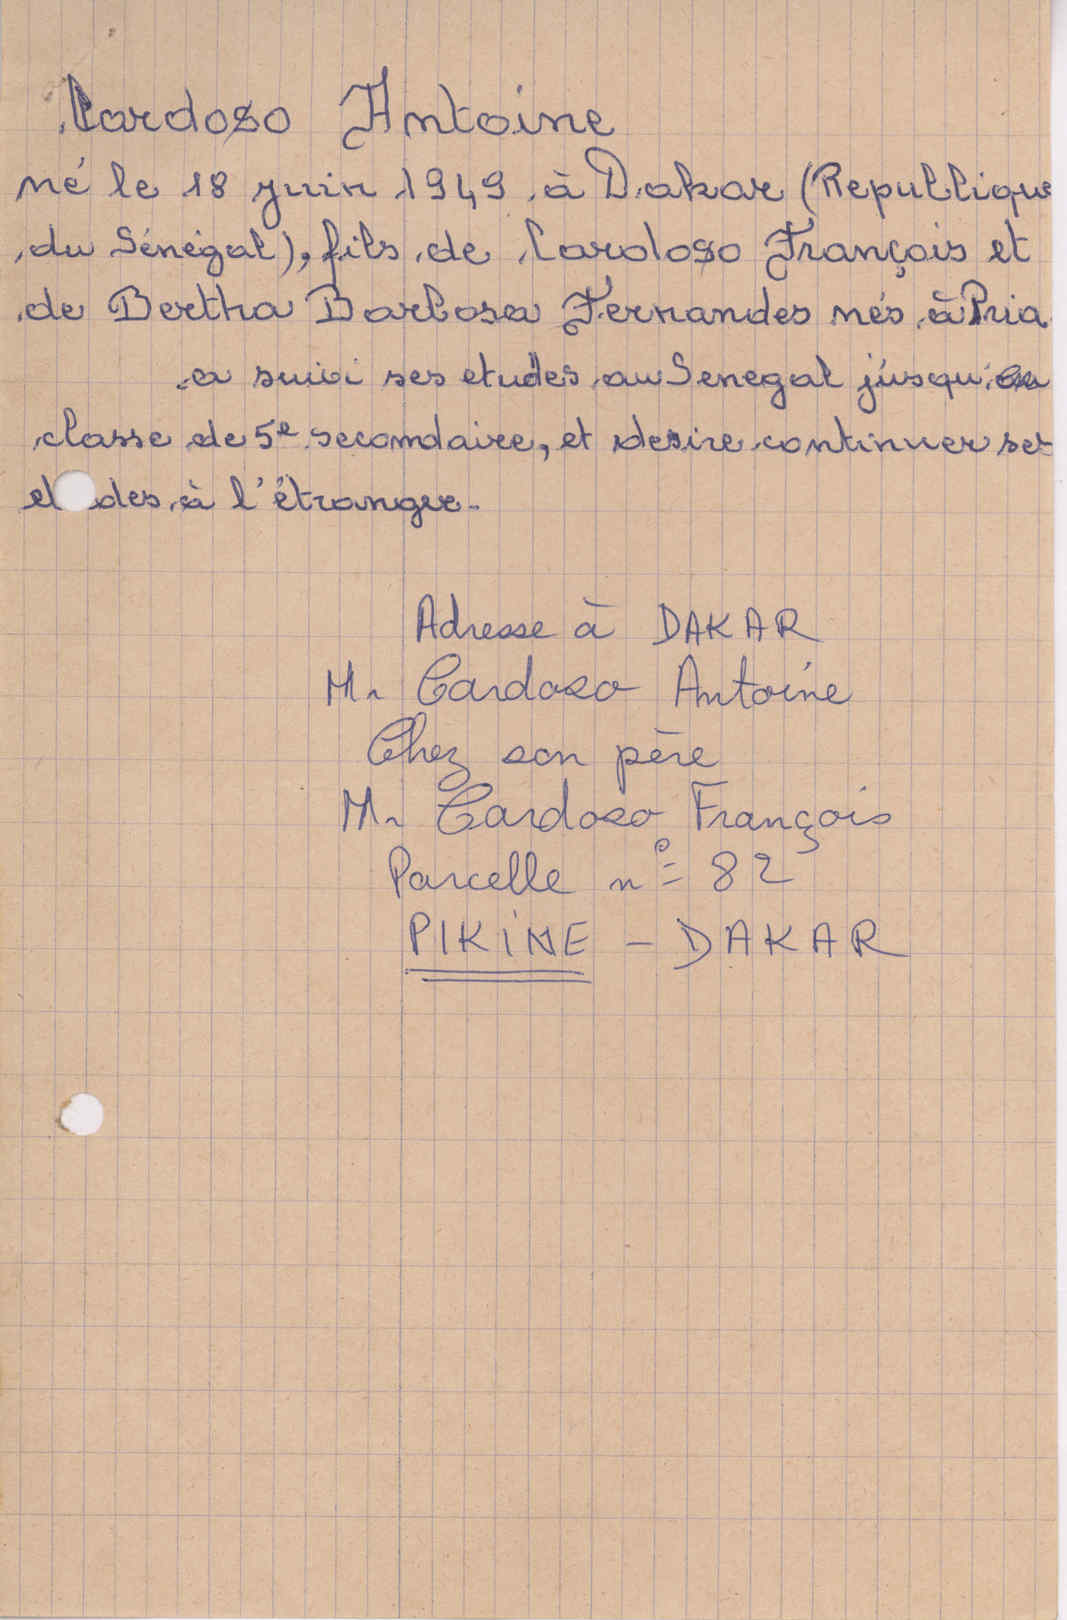 Cardoso Antoine
né le 18 juin 1949 à Dakar (Republique
du Sénégal), fils de Cardoso François et
de Bertha Barbosa Fernandes nés à Pria
a suivi ses etudes au Senegal jusqu'en
classe de 5e secondaire, et desire continuer ses
et des à l'étranger.
Adresse à DAKAR
Mr Cardoso Antoine
Chez son père
Mr Cardoso François
Parcelle n° 82
PIKINE - DAKAR